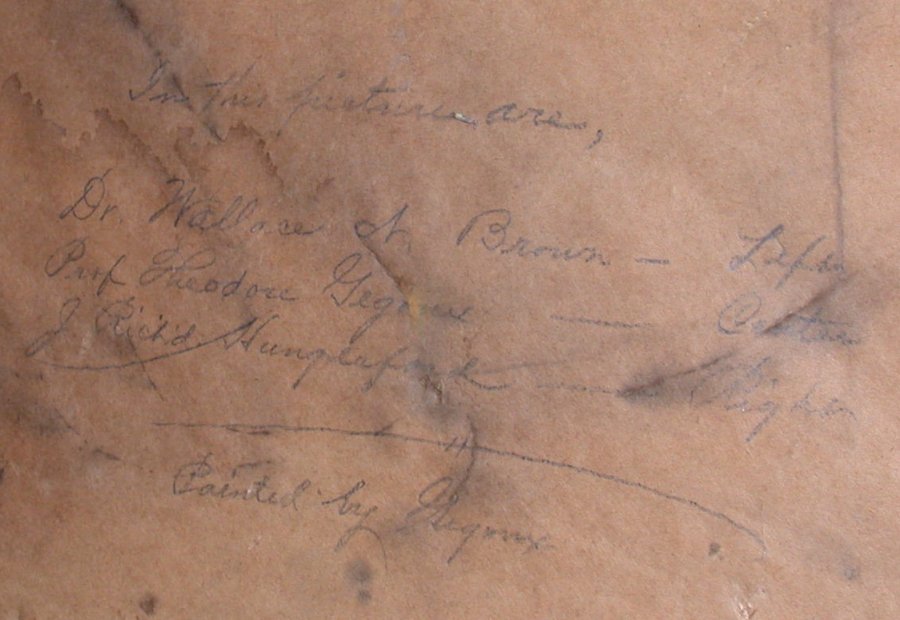 In this picture are,
Dr. Wallace N. Brown — Left
Prof Theodore Gegoux — Center
J. Rich'd Hungerford — Right
Painted by Gegoux